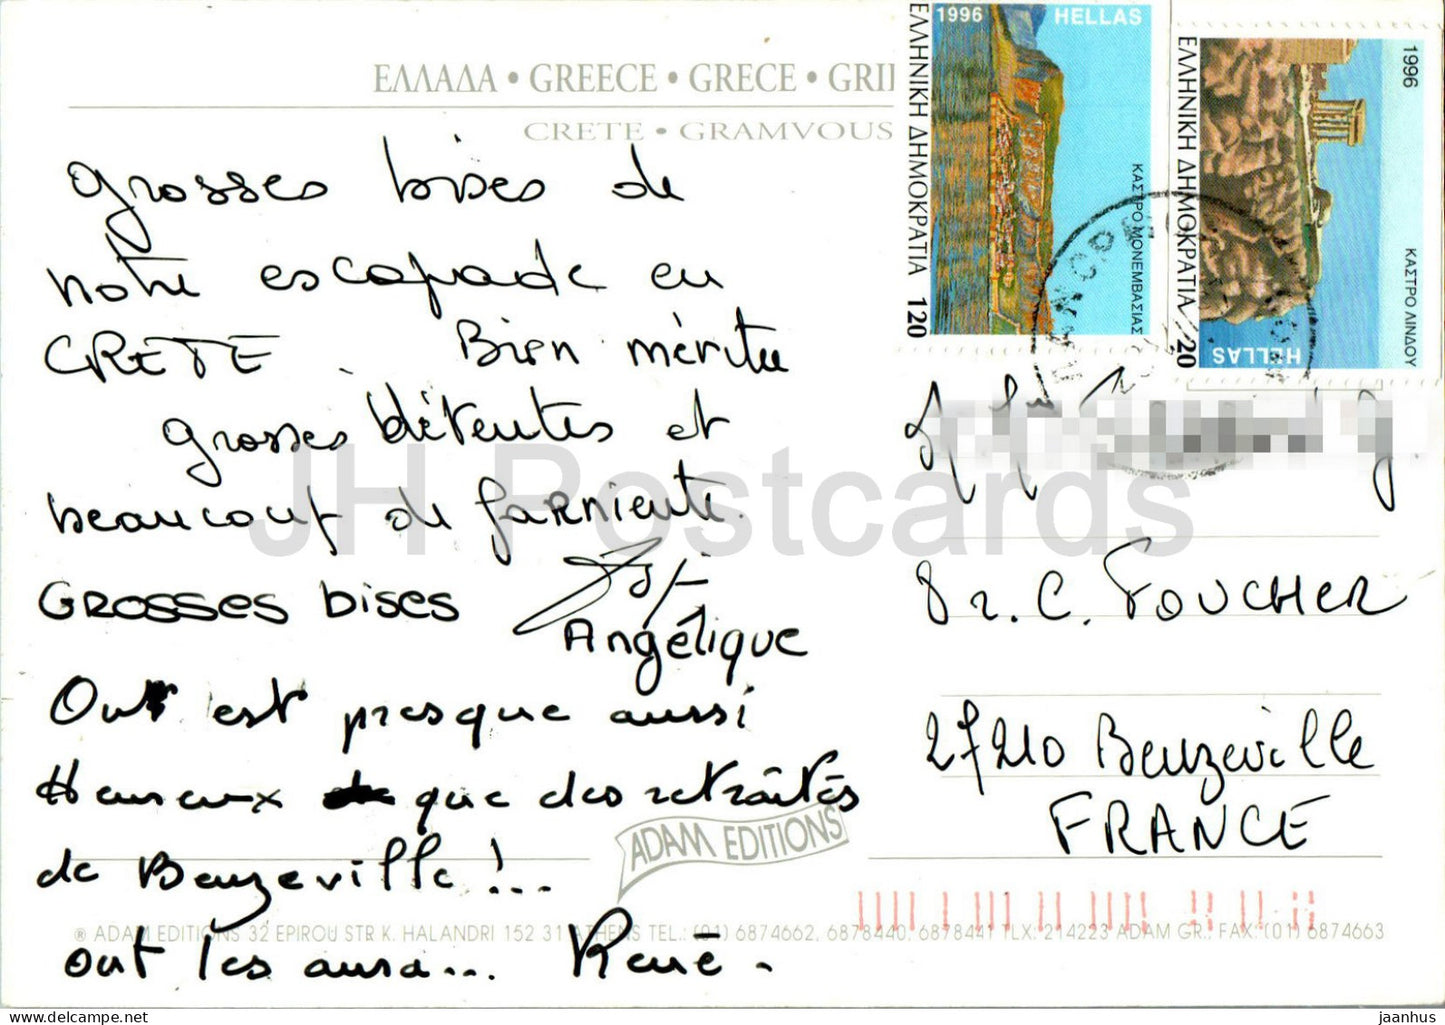 ΕΛΛΑΔΑ • GREECE • GRECE •
CRETE • GRAMVOUS
grosses bises de
notre escapade en
CRETE. Bien méritée
grosses détentes et
beaucoup de farniente.
GROSSES bises
Angélique
On est presque aussi
Heureux que des retraités
de Beuzeville !...
ont les aura... René.
1996 HELLAS
ΕΛΛΗΝΙΚΗ ΔΗΜΟΚΡΑΤΙΑ 120
ΚΑΣΤΡΟ ΜΟΝΕΜΒΑΣΙΑΣ
1996
ΕΛΛΗΝΙΚΗ ΔΗΜΟΚΡΑΤΙΑ 20
ΚΑΣΤΡΟ ΛΙΝΔΟΥ
HELLAS
8 r. C. FOUCHER
27210 Beuzeville
FRANCE
ADAM EDITIONS
® ADAM EDITIONS 32 EPIROU STR K. HALANDRI 152 31 ATHENS TEL.: (01) 6874662, 6878440, 6878441 TLX: 214223 ADAM GR., FAX: (01) 6874663
JH Postcards
jaanhus - www.delcampe.net